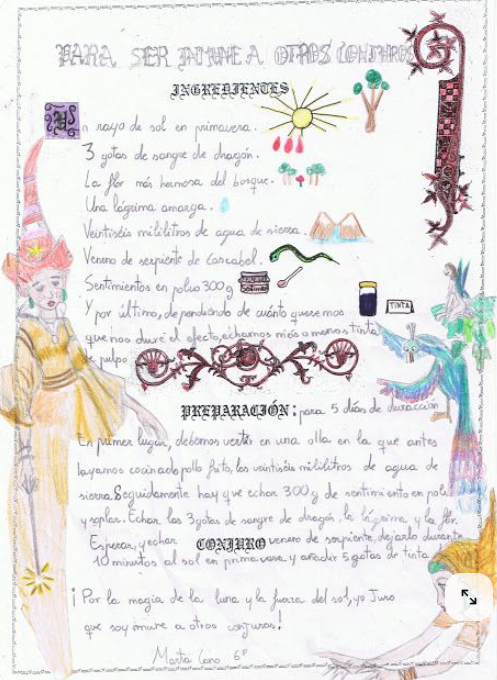 PARA SER INMUNE A OTROS CONJUROS
INGREDIENTES
Un rayo de sol en primavera.
3 gotas de sangre de dragón.
La flor más hermosa del bosque.
Una lágrima amarga.
Veintiséis mililitros de agua de sierra.
Veneno de serpiente de cascabel.
Sentimientos en polvo 300 g
TINTA
Y por último, dependiendo de cuánto queremos
que nos dure el efecto, echamos más o menos tinta
de pulpo
PREPARACIÓN: para 5 días de duracción
En primer lugar, debemos vertir en una olla en la que antes
hayamos cocinado pollo frito, los veintiséis mililitros de agua de
sierra. Seguidamente hay que echar 300 g de sentimiento en polvo
y soplar. Echar las 3 gotas de sangre de dragón, la lágrima y la flor.
Esperar, y echar veneno de serpiente, dejarlo durante
CONJURO
10 minutos al sol en primavera y añadir 5 gotas de tinta
¡Por la magia de la luna y la fuerza del sol, yo juro
que soy inmune a otros conjuros!
Marta Cano 6º